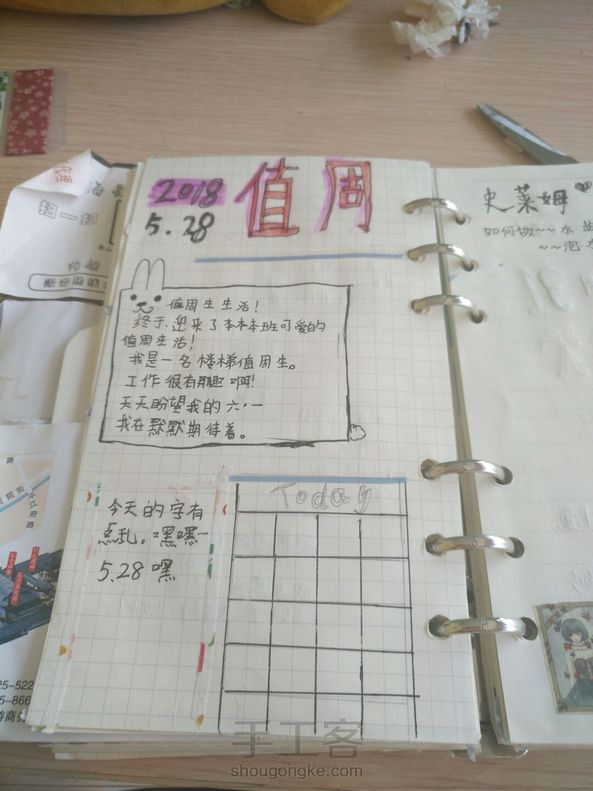 2018
5.28
值周
值周生生活！
终于，迎来了本本本班可爱的
值周生活！
我是一名楼梯值周生。
工作很有趣啊！
天天盼望我的六·一
我在默默期待着。
今天的字有
点乱。嘿嘿~
5.28 嘿
Today
史莱姆
如何做~~水
~~泡
扫一扫
路
25-522
5-866
手工客
shougongke.com